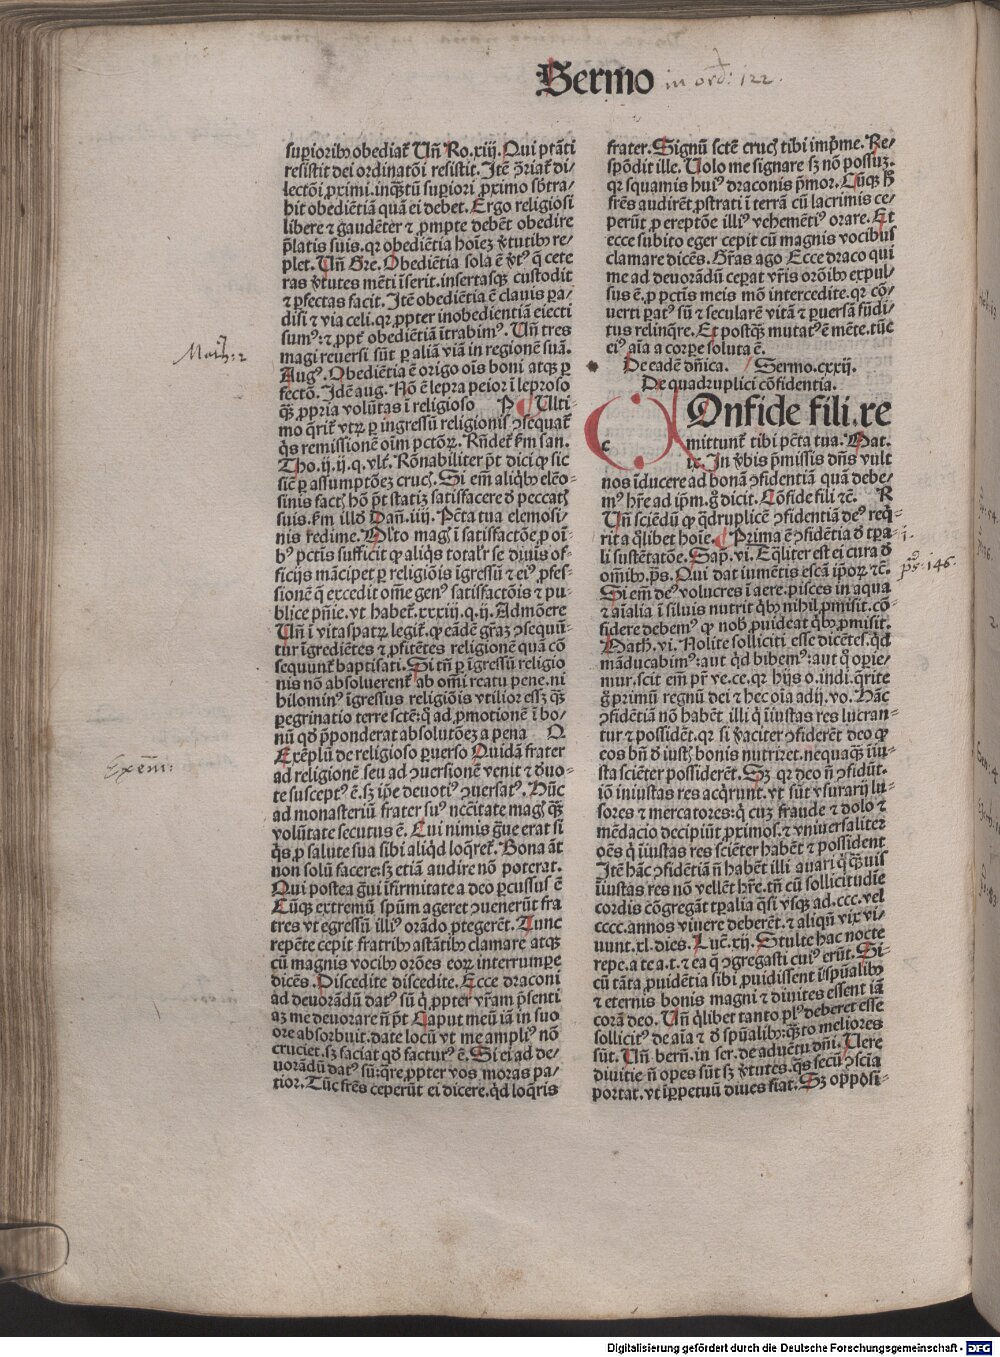 Sermo in ord: 122.
superioribꝰ obediat̃ Vñ Ro.xiij. Qui ptãti
resistit dei ordinatõi resistit. Itẽ ꝯ̃riat̃ di⸗
lectõi ꝓximi. inqꝫtũ supiori ꝓximo sb̃tra⸗
hit obediẽtiã quã ei debet. Ergo religiosi
libere ⁊ gaudẽter ⁊ ꝓmpte debẽt obedire
p̃latis suis. qꝛ obediẽtia hoĩeꝫ v̾tutibꝰ re⸗
plet. Vñ Gre. Obediẽtia sola ẽ v̾tꝰ q̃ cete
ras v̾tutes mẽti ĩserit. insertasqꝫ custodit
⁊ ꝑfectas facit. Itẽ obediẽtia ẽ clauis pa⸗
disi ⁊ via celi. qꝛ ꝓpter inobedientiã eiecti
sumꝰ: ⁊ ꝓpt̃ obediẽtiã ĩtrabimꝰ. Vñ tres
magi reuersi sũt ꝑ aliã viã in regionẽ suã.
Augꝰ. Obediẽtia ẽ origo oĩs boni atqꝫ ꝑ
fectõ. Idẽ aug. Nõ ẽ lepra peior ĩ leproso
qꝫ̃ ꝓpria volũtas ĩ religioso P Vlti⸗
mo q̃rit̃ vtꝝ ꝑ ingressũ religionis ꝯsequat̃
q̃s remissionẽ oĩm pctõꝝ. Rñdet̃ ẜm san.
Tho.ij.ij.q.vlt̃. Rõnabiliter p̃t dici ꝙ sic
sic ꝑ assumptõeꝫ crucꝭ. Si em̃ aliqͥbꝰ eleõ⸗
sinis factꝭ hõ p̃t statim satisfacere ð peccatꝭ
suis. ẜm illð Dañ.iiij. Pc̃ta tua elemosi⸗
nis redime. Mlto magꝭ ĩ satisfactõe. ꝓ oĩ⸗
bꝰ pctis sufficit ꝙ aliqͥs total̾r se diuĩs of⸗
ficijs mãcipet ꝑ religiõis ĩgressũ ⁊ eiꝰ ꝓfes⸗
sionẽ q̃ excedit om̃e genꝰ satisfactõis ⁊ pu⸗
blice pñie. vt habet̃.xxxiij.q.ij. Admõere
Vñ ĩ vitaspatꝝ legit̃. ꝙ eãdẽ gr̃aꝫ ꝯsequũ⸗
tur ĩgrediẽtes ⁊ ꝓfitẽtes religionẽ quã cõ
sequunt̃ baptisati. Si tñ ꝑ ĩgressũ religio
nis nõ absoluerent̃ ab om̃i reatu pene. ni
hilominꝰ ĩgressus religiõis vtilior essꝫ qꝫ̃
ꝑegrinatio terre sctẽ: qͥ̃ ad ꝓmotionẽ ĩ bo⸗
nũ qð p̃ponderat absolutõeꝫ a pena Q
Exẽplũ de religioso ꝑuerso Quidã frater
ad religionẽ seu ad ꝯuersionẽ venit ⁊ ð̾uo⸗
te susceptꝰ ẽ. sꝫ ip̃e deuotiꝰ ꝯuersatꝰ. Hũc
ad monasteriũ frater suꝰ nccẽitate magꝭ qꝫ̃
volũtate secutus ẽ. Cui nimis g̃ue erat si
qͥs ꝓ salute sua sibi aliqͥd loq̃ret̃. Bona ãt
non solũ facere: sꝫ etiã audire nõ poterat.
Qui postea g̃ui ĩfirmitate a deo ꝑcussus ẽ
Cũqꝫ extremũ spũm ageret ꝯuenerũt fra
tres vt egressũ illiꝰ orãdo ꝓtegerẽt. Tunc
repẽte cepit fratribꝰ astãtibꝰ clamare atqꝫ
cũ magnis vocibꝰ orões eoꝝ interrumpe
dicẽs. Discedite discedite. Ecce draconi
ad deuorãdũ datꝰ sũ qͥ ꝓpter vr̃am p̃senti
aꝫ me deuorare ñ p̃t Caput meũ iã in suo
ore absorbuit. date locũ vt me ampliꝰ nõ
cruciet. sꝫ faciat qð facturꝰ ẽ. Si ei ad de⸗
uorãdũ datꝰ sũ: qͣre ꝓpter vos moras pa⸗
tior. Tũc fr̃es ceperũt ei dicere. qͥd loqͥris
Math: 2
Exem:
frater. Signũ sctẽ crucꝭ tibi imp̃me. Re⸗
spõdit ille. Volo me signare sꝫ nõ possuꝫ.
qꝛ squamis huiꝰ draconis p̃mor. Cũqꝫ h̾
fr̃es audirẽt ꝓstrati ĩ terrã cũ lacrimis ce⸗
perũt ꝓ ereptõe illiꝰ vehemẽtiꝰ orare. Et
ecce subito eger cepit cũ magnis vocibus
clamare dicẽs. Gr̃as ago Ecce draco qui
me ad deuorãdũ ceperat vr̃is orõibꝰ expul⸗
sus ẽ. ꝓ pctis meis mõ intercedite. qꝛ cõ⸗
uerti paratꝰ sũ ⁊ secularẽ vitã ⁊ ꝑuersã fũdi⸗
tus relinq̃re. Et postqꝫ̃ mutatꝰ ẽ mẽte. tũc
eiꝰ aĩa a corpe soluta ẽ.
De eadẽ dñica. Sermo.cxxij.
De quadruplici cõfidentia.
c Onfide fili. re
mittunt̃ tibi pc̃ta tua. Mat.
ix. In v̾bis p̃missis dñs vult
nos ĩducere ad bonã ꝯfidentiã quã debe⸗
mꝰ hr̃e ad ip̃m. g̊ dicit. Cõfide fili ⁊c̃. R
Vñ sciẽdũ ꝙ qͣdruplicẽ ꝯfidentiã deꝰ req̃⸗
rit a qͥlibet hoĩe. Prima ẽ ꝯfidẽtia ð tꝑa⸗ i.
li sustẽtatõe. Sap.vi. Eq̃liter est ei cura ð
om̃ibꝰ. ps. Qui dat iumẽtis escã ip̃oꝝ ⁊c̃. ps: 146.
Si em̃ deꝰ volucres ĩ aere. pisces in aqua
⁊ aĩalia ĩ siluis nutrit qͥbꝰ nihil ꝓmisit. cõ⸗
fidere debemꝰ ꝙ nob̾ ꝓuideat qͥbꝰ ꝓmisit.
Math.vi. Nolite solliciti esse dicẽtes. qͥd
mãducabimꝰ: aut qͥd bibemꝰ: aut qͦ opie⸗
mur. scit em̃ pr̃ ve. ce. qꝛ hijs o. indi. q̃rite
g̊ primũ regnũ dei ⁊ hec oĩa adij. vo. Hãc
ꝯfidẽtiã nõ habẽt illi qͥ ĩiustas res lucran⸗
tur ⁊ possidẽt. qꝛ si v̾aciter ꝯfiderẽt deo ꝙ
eos bñ ð iustꝭ bonis nutriret. nequaqꝫ ĩiu⸗
sta sciẽter possiderẽt. Sꝫ qꝛ deo ñ ꝯfidũt.
iõ iniustas res acq̃runt. vt sũt vsurarij lu⸗
sores ⁊ mercatores: qͥ cuꝫ fraude ⁊ dolo ⁊
mẽdacio decipiũt ꝓximos. ⁊ vniuersaliter
oẽs qͥ ĩiustas res sciẽter habẽt ⁊ possident
Itẽ hãc ꝯfidẽtiã ñ habẽt illi auari qͥ qꝫuis
ĩiustas res nõ vellẽt hr̃e. tñ cũ sollicitudĩe
cordis cõgregãt tꝑalia qͣsi vsqꝫ ad.ccc. vel
cccc. annos viuere deberẽt. ⁊ aliqñ vix vi⸗
uunt.xl. dies. Luc̃.xij. Stulte hac nocte
repe. a te a. t. ⁊ ea q̃ ꝯgregasti cuiꝰ erũt. Si⸗
cũ tãta ꝓuidẽtia sibi ꝓuidissent ĩ spũalibꝰ
⁊ eternis bonis magni ⁊ diuites essent iã
corã deo. Vñ qͥlibet tanto plꝰ deberet esse
sollicitꝰ de aĩa ⁊ ð spũalibꝰ: qꝫ̃to meliores
sũt. Vñ berñ. in ser. de aduẽtu dñi. Vere
diuitie ñ opes sũt sꝫ v̾tutes. q̃s secũ ꝯscia
portat. vt ĩꝑpetuũ diues fiat. Sꝫ opposi⸗
Digitalisierung gefördert durch die Deutsche Forschungsgemeinschaft - DFG